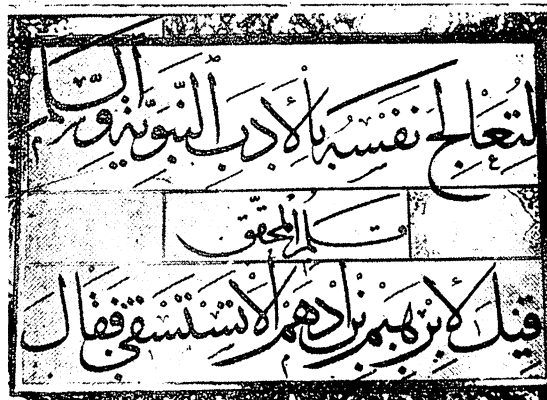 لتُعَالج نفسه بالأدب النبوية
قلم المحقق
قيل لإبرهيم بن ادهم ألا تستسقي فقال